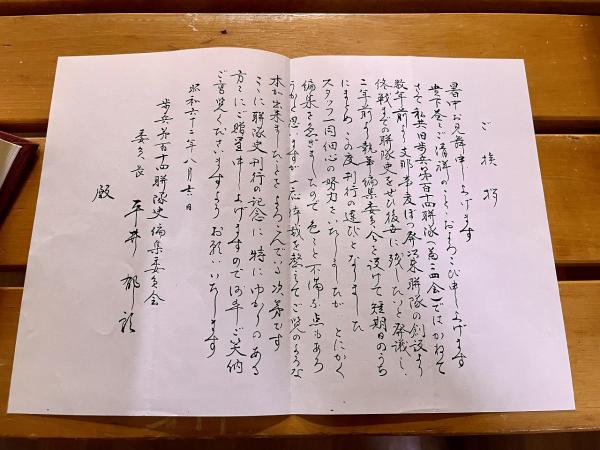 ご挨拶
暑中お見舞申し上げます
貴下愈々ご清祥のこと、およろこび申し上げます
さて私共旧歩兵第百十四聯隊(菊二四会)ではかねて
数年前より支那事変ぼっ発以来聯隊の創設より
終戦までの聯隊史をぜひ後世に残したいと発議し、
二年前より執筆編集委員会を設けて短期日のうち
にまとめこの度刊行の運びとなりました
スタッフ一同細心の努力をいたしましたが、とにかく
編集を急ぎましたので色々と不備な点もあろ
うかと思いますが一応体裁を整えてご覧のような
本が出来ましたことをよろこんでる次第です
ここに聯隊史刊行の記念に特にゆかりのある
方々にご贈呈申し上げますので何卒ご笑納
ご高覧くださいますようお願いいたします
昭和六十二年八月六日
歩兵第百十四聯隊史編集委員会
委員長 平井郁
殿